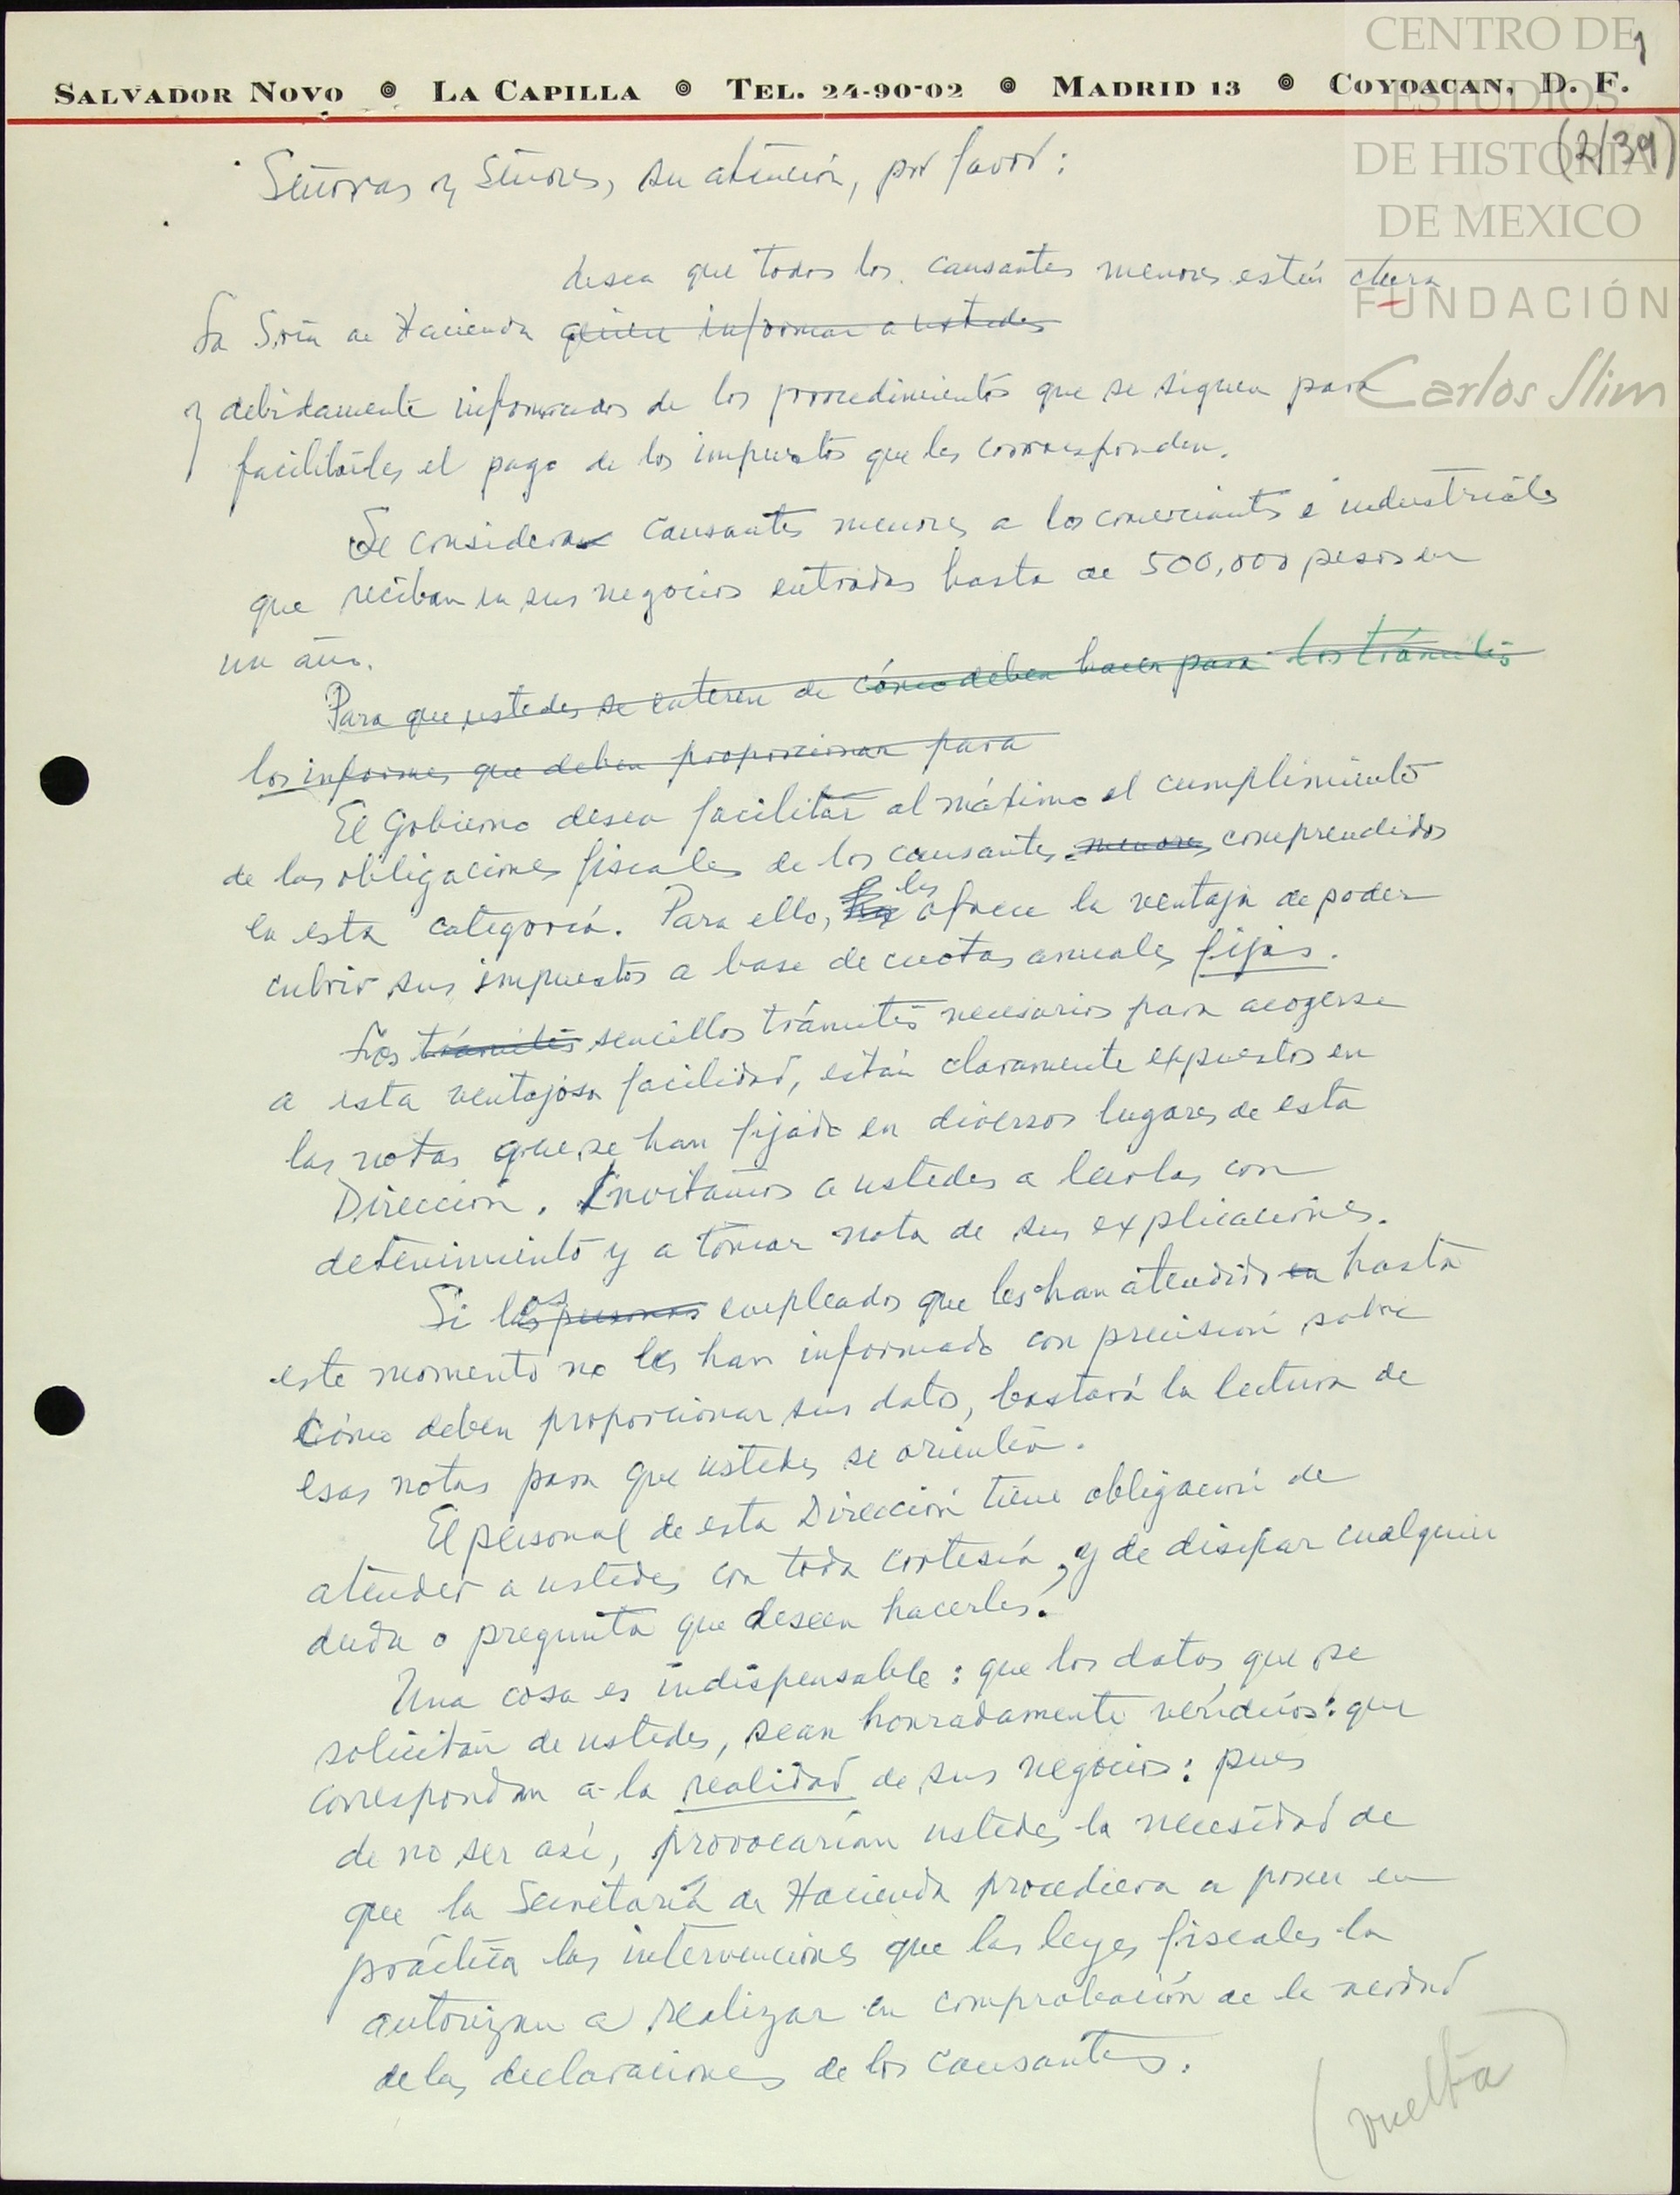 CENTRO DE
ESTUDIOS
DE HISTORIA
DE MEXICO
FUNDACIÓN
Carlos Slim
1
SALVADOR NOVO LA CAPILLA TEL. 24-90-02 MADRID 13 COYOACAN, D. F.
(2/39)
Señoras y Señores, su atención, por favor:
desea que todos los causantes menores estén clara
La Sría de Hacienda quiere informar a ustedes
y debidamente informados de los procedimientos que se siguen para
facilitarles el pago de los impuestos que les corresponden.
Se consideran causantes menores a los comerciantes e industriales
que reciban en sus negocios entradas hasta de 500,000 pesos en
un año.
Para que ustedes se enteren de cómo deben hacer para los trámites
los informes que deben proporcionar para
El Gobierno desea facilitar al máximo el cumplimiento
de las obligaciones fiscales de los causantes menores comprendidos
en esta categoría. Para ello, les ofrece la ventaja de poder
cubrir sus impuestos a base de cuotas anuales fijas.
Los trámites sencillos trámites necesarios para acogerse
a esta ventajosa facilidad, están claramente expuestos en
las notas que se han fijado en diversos lugares de esta
Dirección. Invitamos a ustedes a leerlas con
detenimiento y a tomar nota de sus explicaciones.
Si los personas empleados que les han atendido en hasta
este momento no les han informado con precisión sobre
cómo deben proporcionar sus datos, bastará la lectura de
esas notas para que ustedes se orienten.
El personal de esta Dirección tiene obligación de
atender a ustedes con toda cortesía, y de disipar cualquier
duda o pregunta que deseen hacerles.
Una cosa es indispensable: que los datos que se
solicitan de ustedes, sean honradamente verídicos: que
correspondan a la realidad de sus negocios: pues
de no ser así, provocarían ustedes la necesidad de
que la Secretaría de Hacienda procediera a poner en
práctica las intervenciones que las leyes fiscales la
autorizan a realizar en comprobación de la verdad
de las declaraciones de los causantes.
(vuelta)